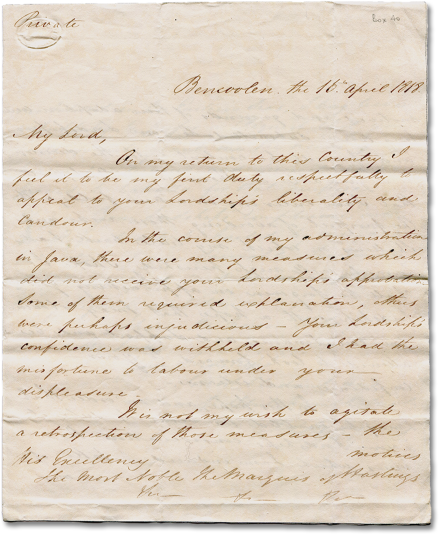 Private
Box 40
Bencoolen, the 15th April 1818
My Lord,
On my return to this Country I
feel it to be my first duty respectfully to
appeal to your Lordship's liberality and
Candour.
In the course of my administration
in Java, there were many measures which
did not receive your Lordship's approbation
some of them required explanation, others
were perhaps injudicious - Your Lordship's
confidence was withheld and I had the
misfortune to labour under your
displeasure
It is not my wish to agitate
a retrospection of those measures - the
motives
His Excellency
The Most Noble The Marquis of Hastings